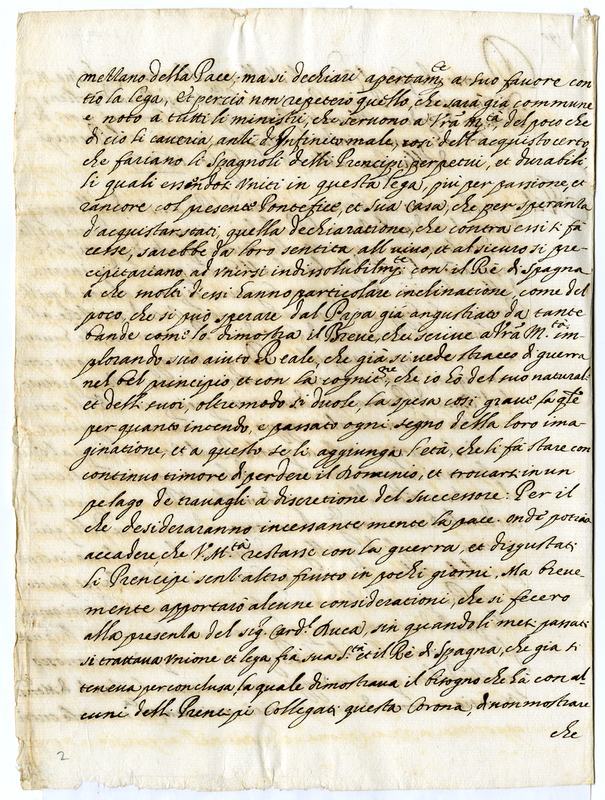 mettano della Pace, ma si dechiari apertam.te a suo favore con
tro la lega, Et perciò non repeterò quello, che sarà già commune
e noto a tutti li ministri, che servono a Vra M.tà, del poco che
di ciò si caveria, anzi d'Infinito male, così dell'acquisto certo
che fariano li Spagnoli delli Prencipi perpetui, et durabili
li quali essendosi Vniti in questa lega, più per passione, et
rancore col presente Pontefice, et sua Casa, che per speranza
d'acquistar stati, quella dechiaratione, che contra essi si fa
cesse, sarebbe da loro sentita all'vivo, et al sicuro si pre-
cipitariano ad vnirsi indissolubilm.te con il Rè di Spagna
à che molti d'essi hanno particolare inclinatione, come del
poco, che si può sperare dal Papa già angustiato da tante
bande come lo dimostra il Breve, che scrive a Vra M.tà im-
plorando suo aiuto Reale, che già si vede stracco di guerra
nel bel principio, et con la cognit.ne, che io hò del suo natural.
et delli suoi, oltremodo si duole, la spesa così grave la q.le
per quanto intendo, è passato ogni segno della loro ima-
ginatione, et a questo se li aggiunga l'età, che li fà stare con
continuo timore di perdere il Dominio, et trovarsi in un
pelago de travagli à discretione del successore. Per il
che desideraranno incessantemente la pace. onde potria
accadere, che V. M.tà restasse con la guerra, et disgustati
li Prencipi senz'altro frutto in pochi giorni. Ma breve-
mente apportarò alcune considerationi, che si fecero
alla presenza del sig.r Card.l Duca, sin quando li mesi passati
si trattava Vnione et lega frà sua S.tà et il Rè di Spagna, che già si
teneva per conclusa, la quale dimostrava il bisogno che hà con al-
cuni delli Prencipi Collegati questa Corona, di non mostrare
che
2